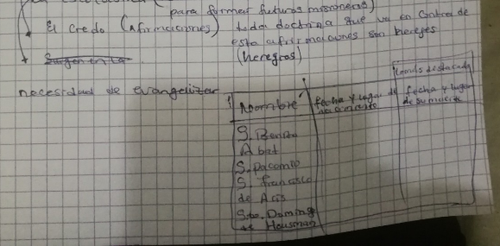 para formar futuros misioneros)
El Credo (afirmaciones) toda doctrina que va en contra de
esta afirmaciones son herejes
(herejías)
necesidad de evangelizar
Nombre
fecha y lugar de
fecha y lugar
de su muerte
S. Benito
Abat
S. Pacomio
S. Francisco
de Asís
Sto. Doming